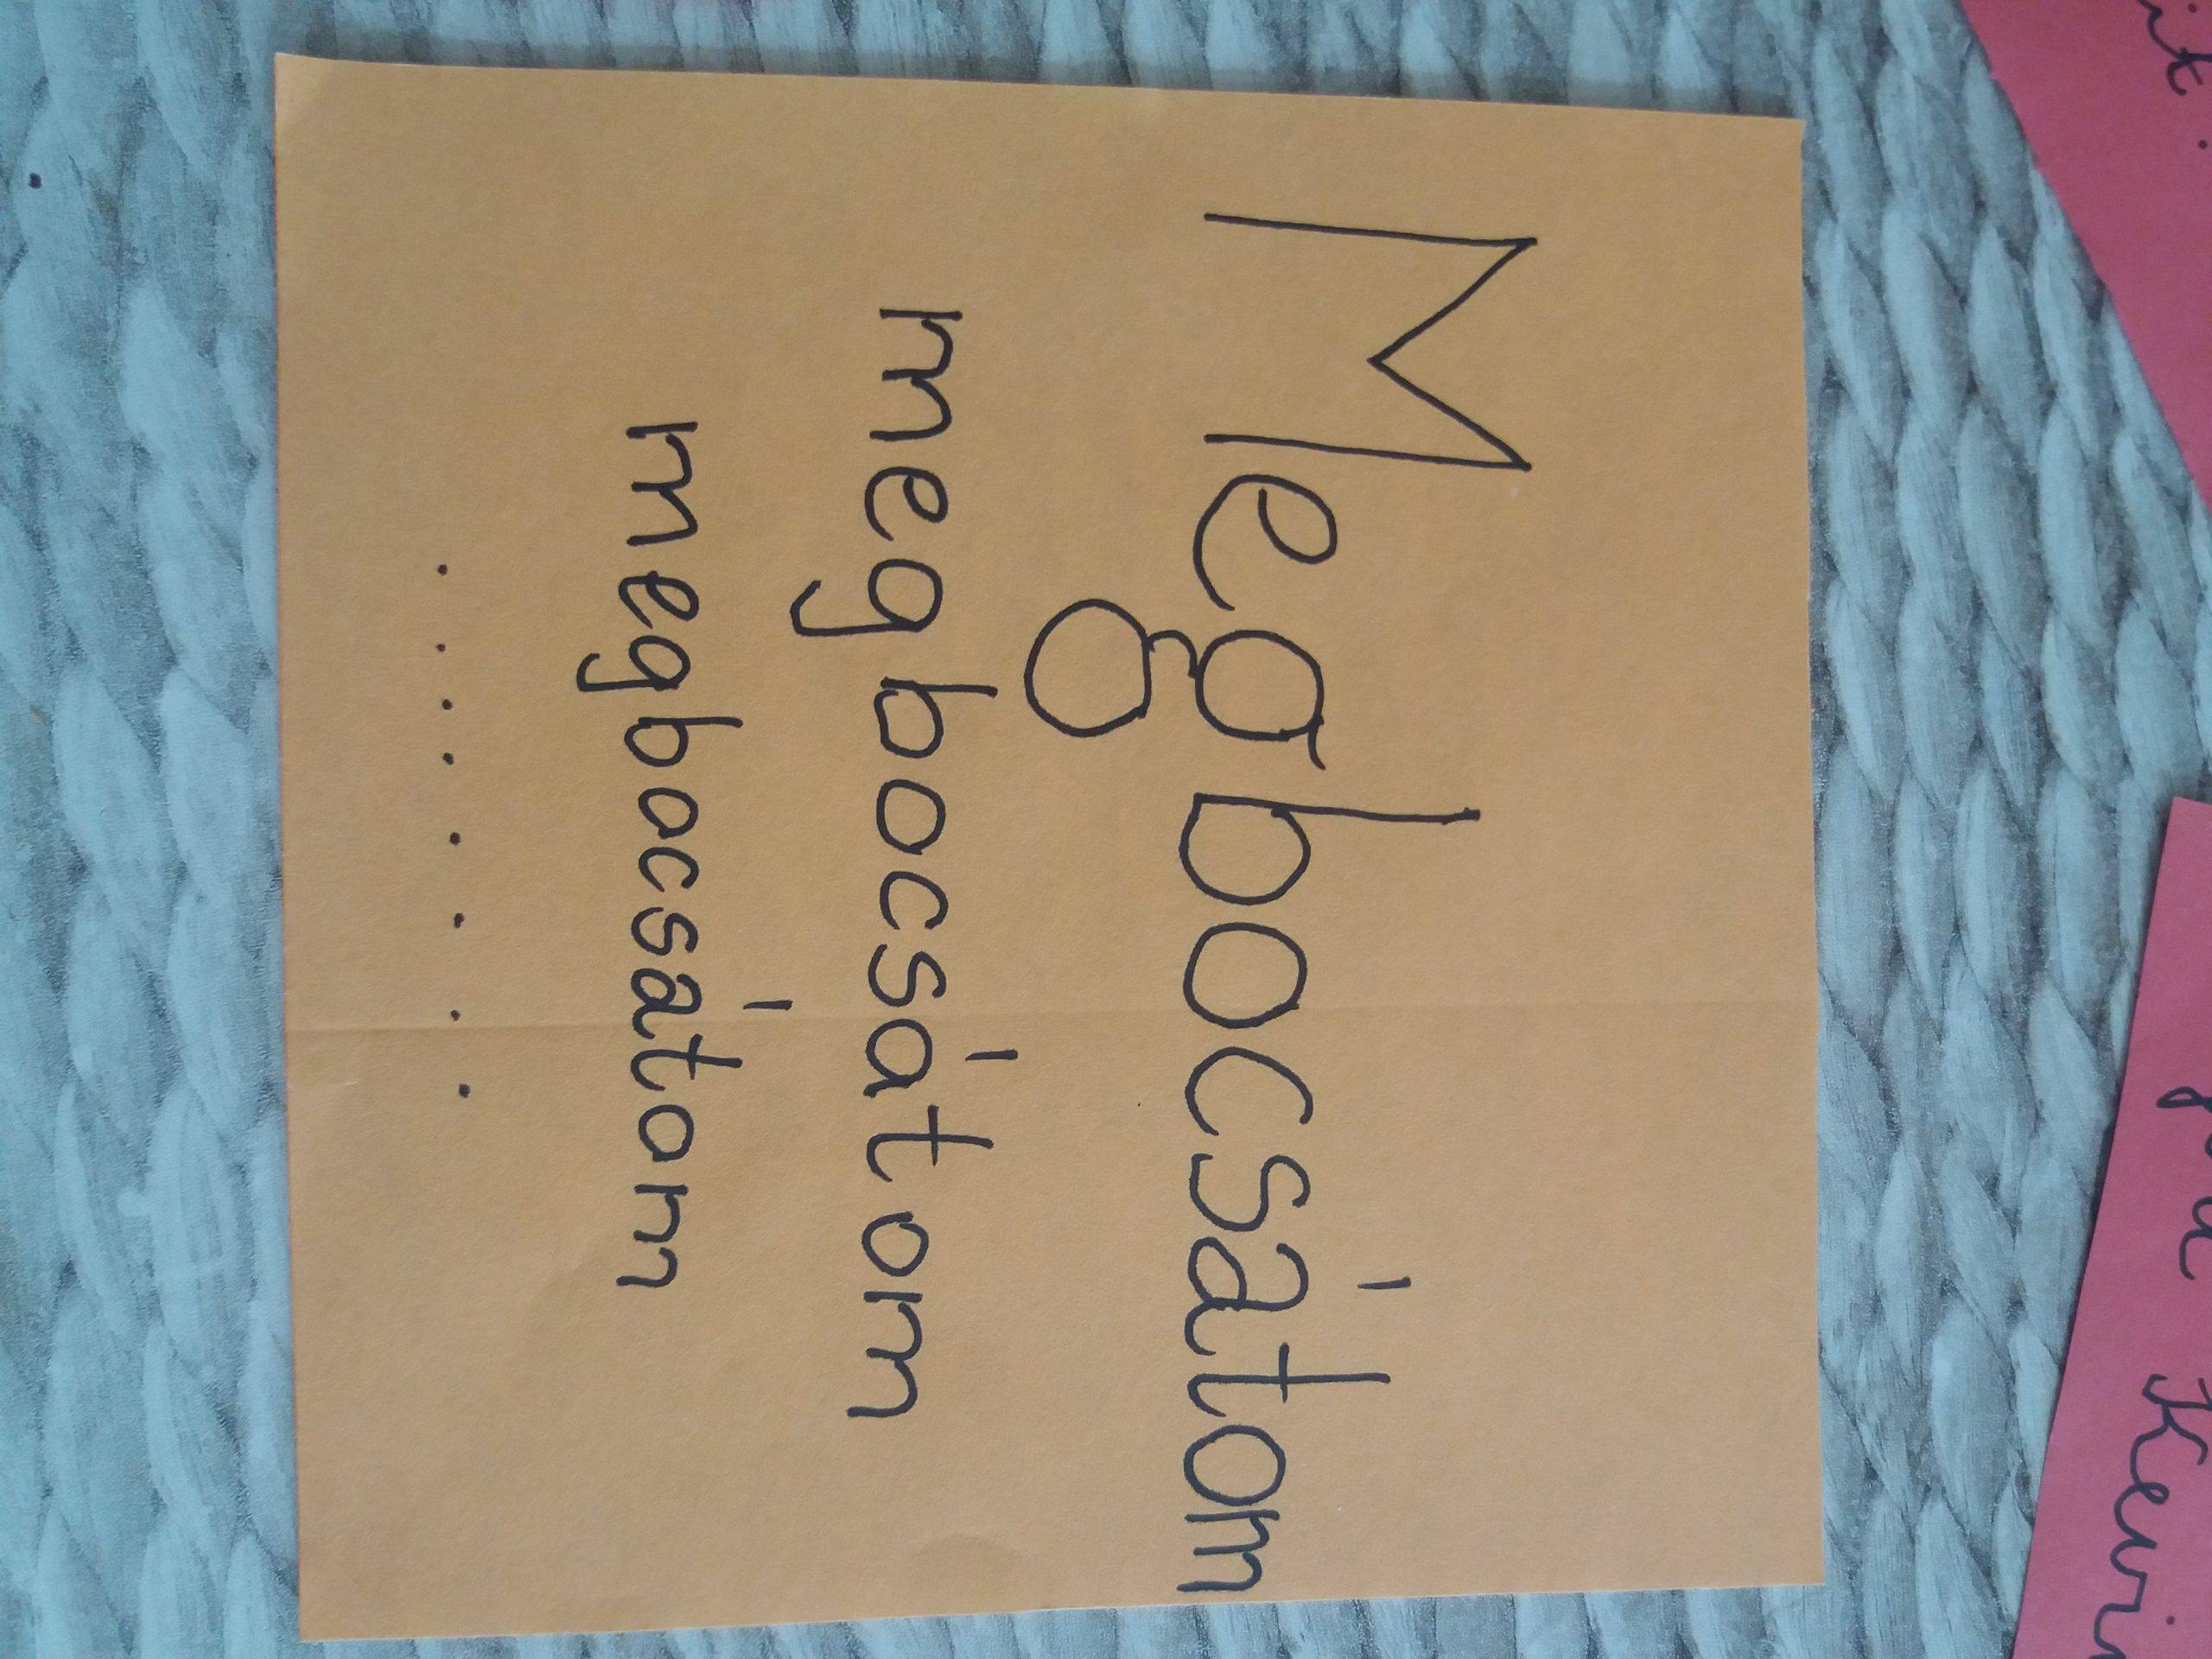 Megbocsátom
megbocsátom
megbocsátom
. . . . . . . .
Kevin